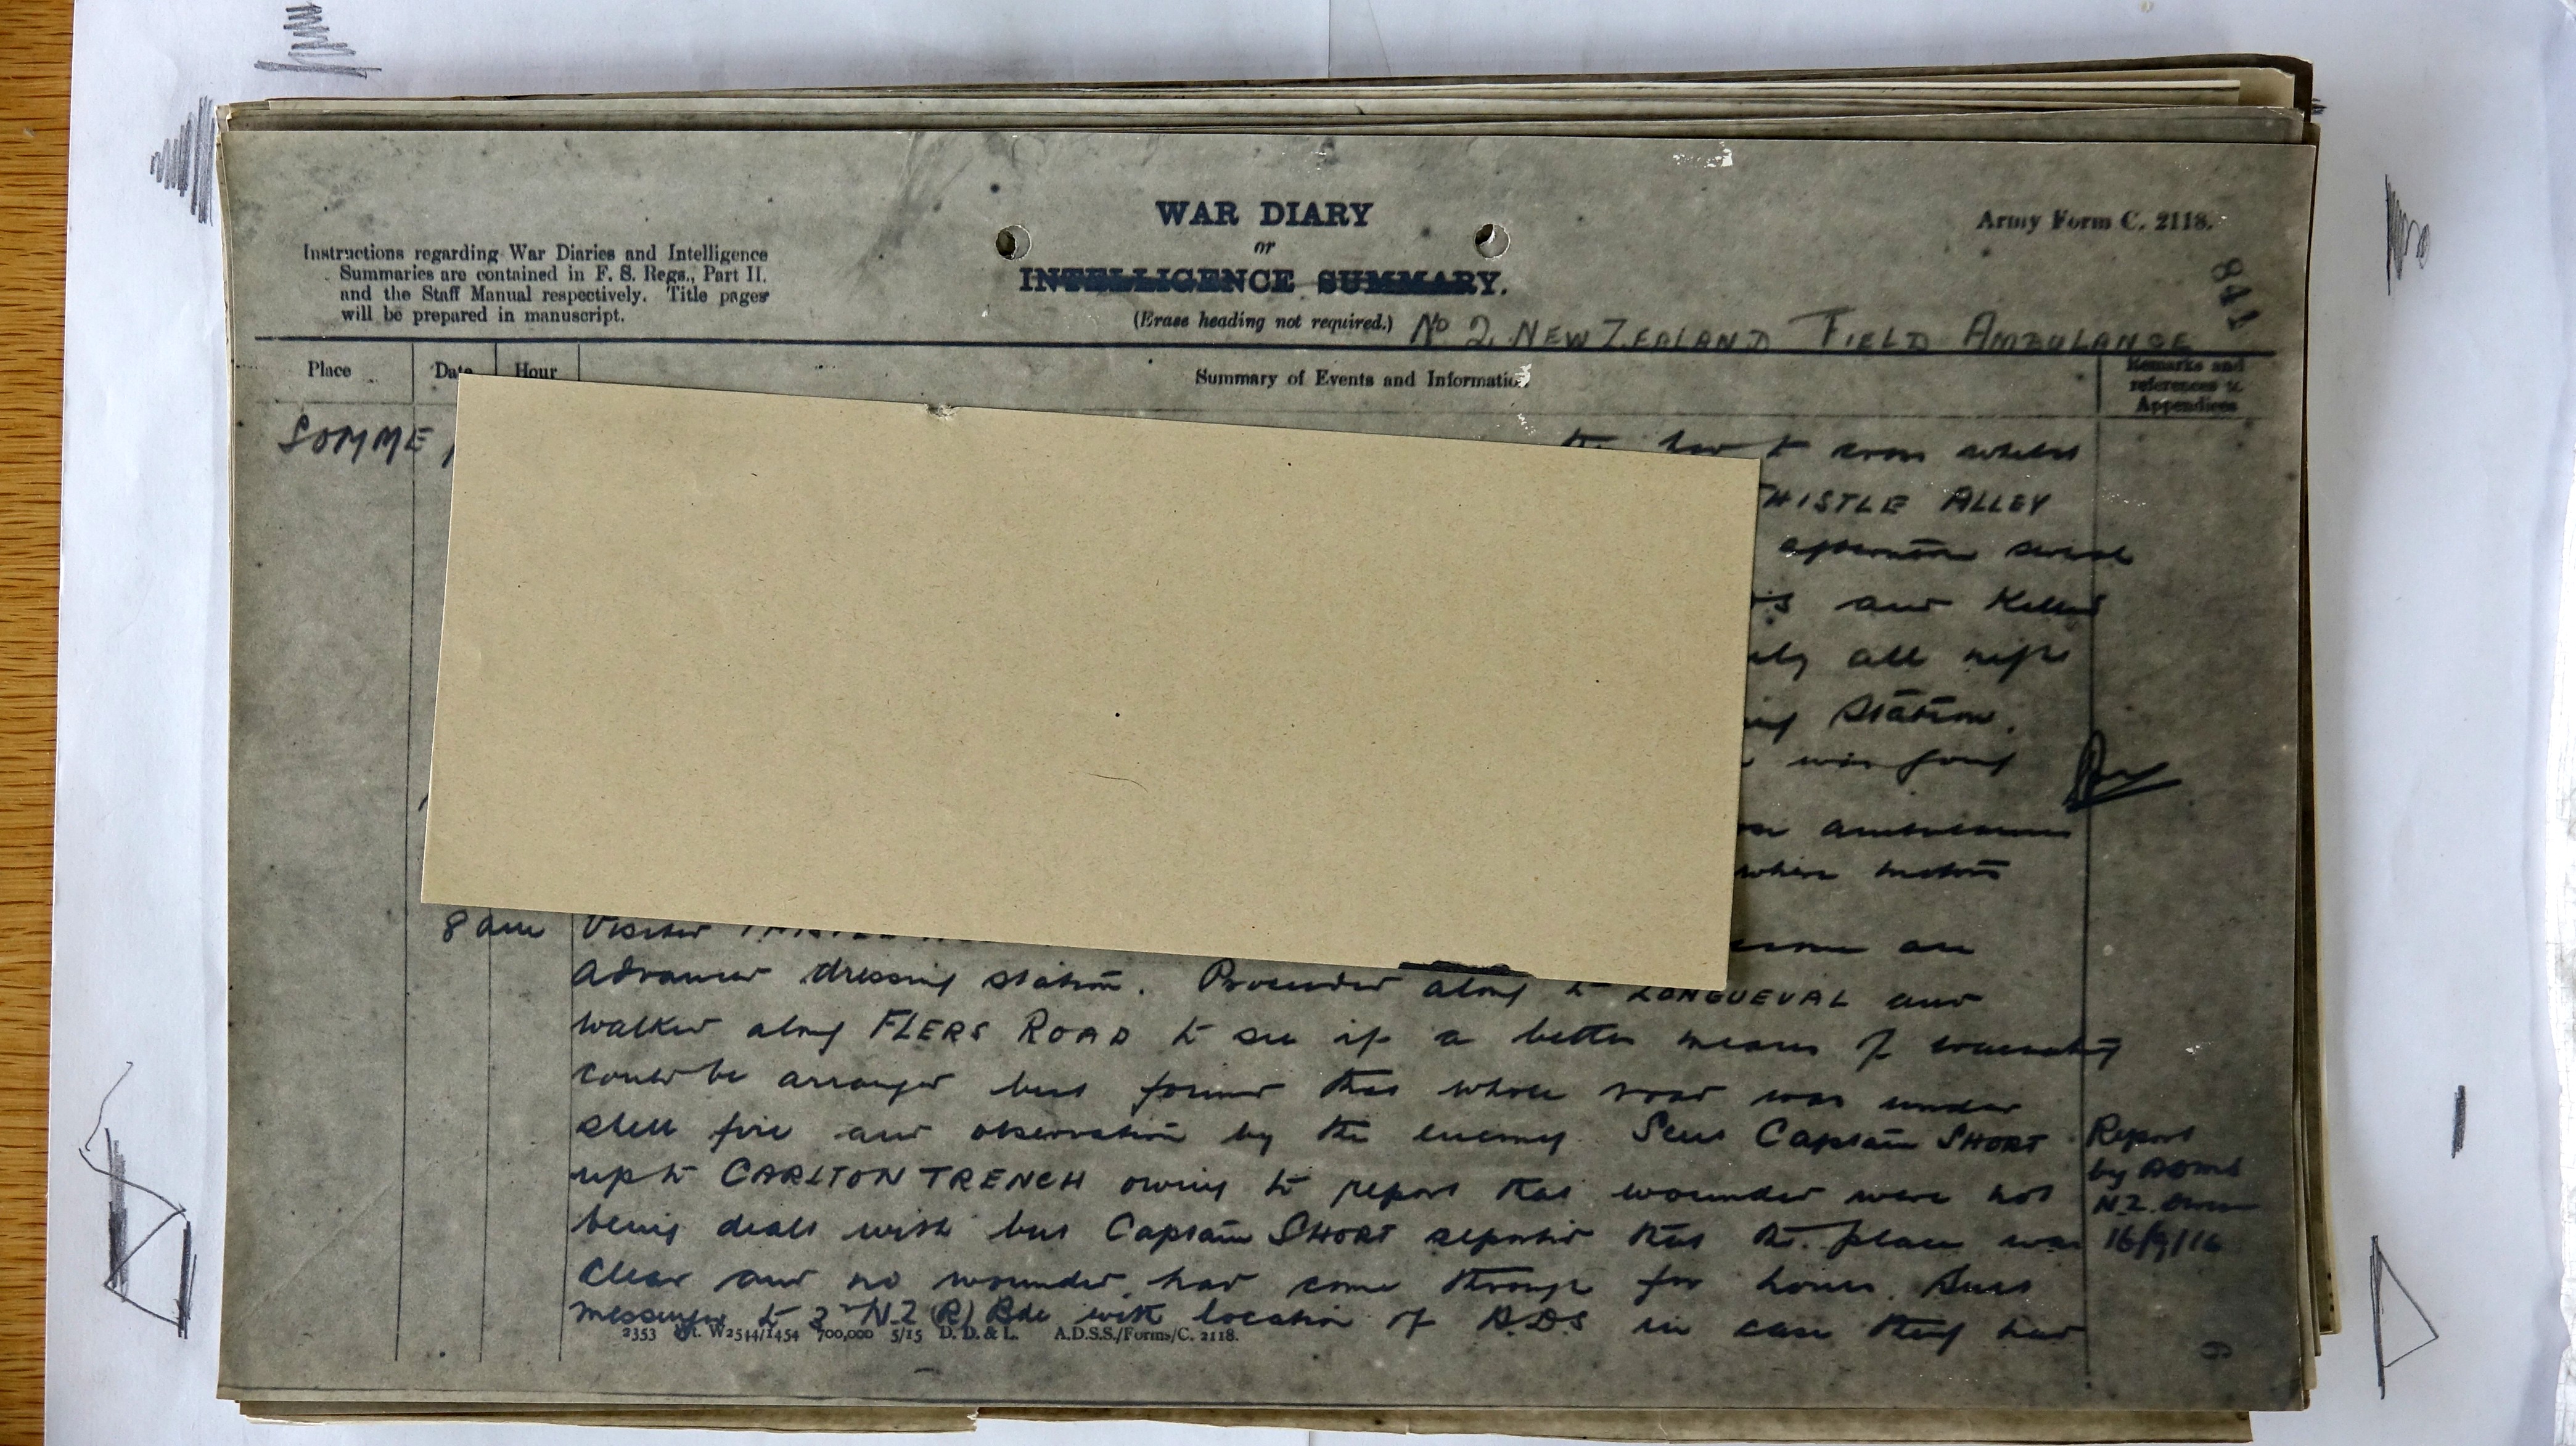 WAR DIARY
or
INTELLIGENCE SUMMARY.
(Erase heading not required.)
Army Form C. 2118.
841
Instructions regarding War Diaries and Intelligence
Summaries are contained in F. S. Regs., Part II.
and the Staff Manual respectively. Title pages
will be prepared in manuscript.
No 2 NEW ZEALAND FIELD AMBULANCE
Place Date Hour Summary of Events and Information Remarks and
references to
Appendices
SOMME
to cross whilst
THISTLE ALLEY
afternoon several
and killed
all night
Station.
was going
ambulances
where motors
8 am Visited
are
Advanced dressing station. Proceeded along to LONGUEVAL and
walked along FLERS ROAD to see if a better means of evacuating
could be arranged but found that whole road was under
shell fire and observation by the enemy. Sent Captain SHORT
up to CARLTON TRENCH owing to report that wounded were not
being dealt with but Captain SHORT reported that the place was
clear and no wounded had come through for hours. Sent
messenger to 3rd N.Z (R) Bde with location of A.D.S in case they had
Report
by ADMS
N.Z. Divn
16/9/16
2353 Wt. W2544/1454 700,000 5/15 D. D. & L. A.D.S.S./Forms/C. 2118.